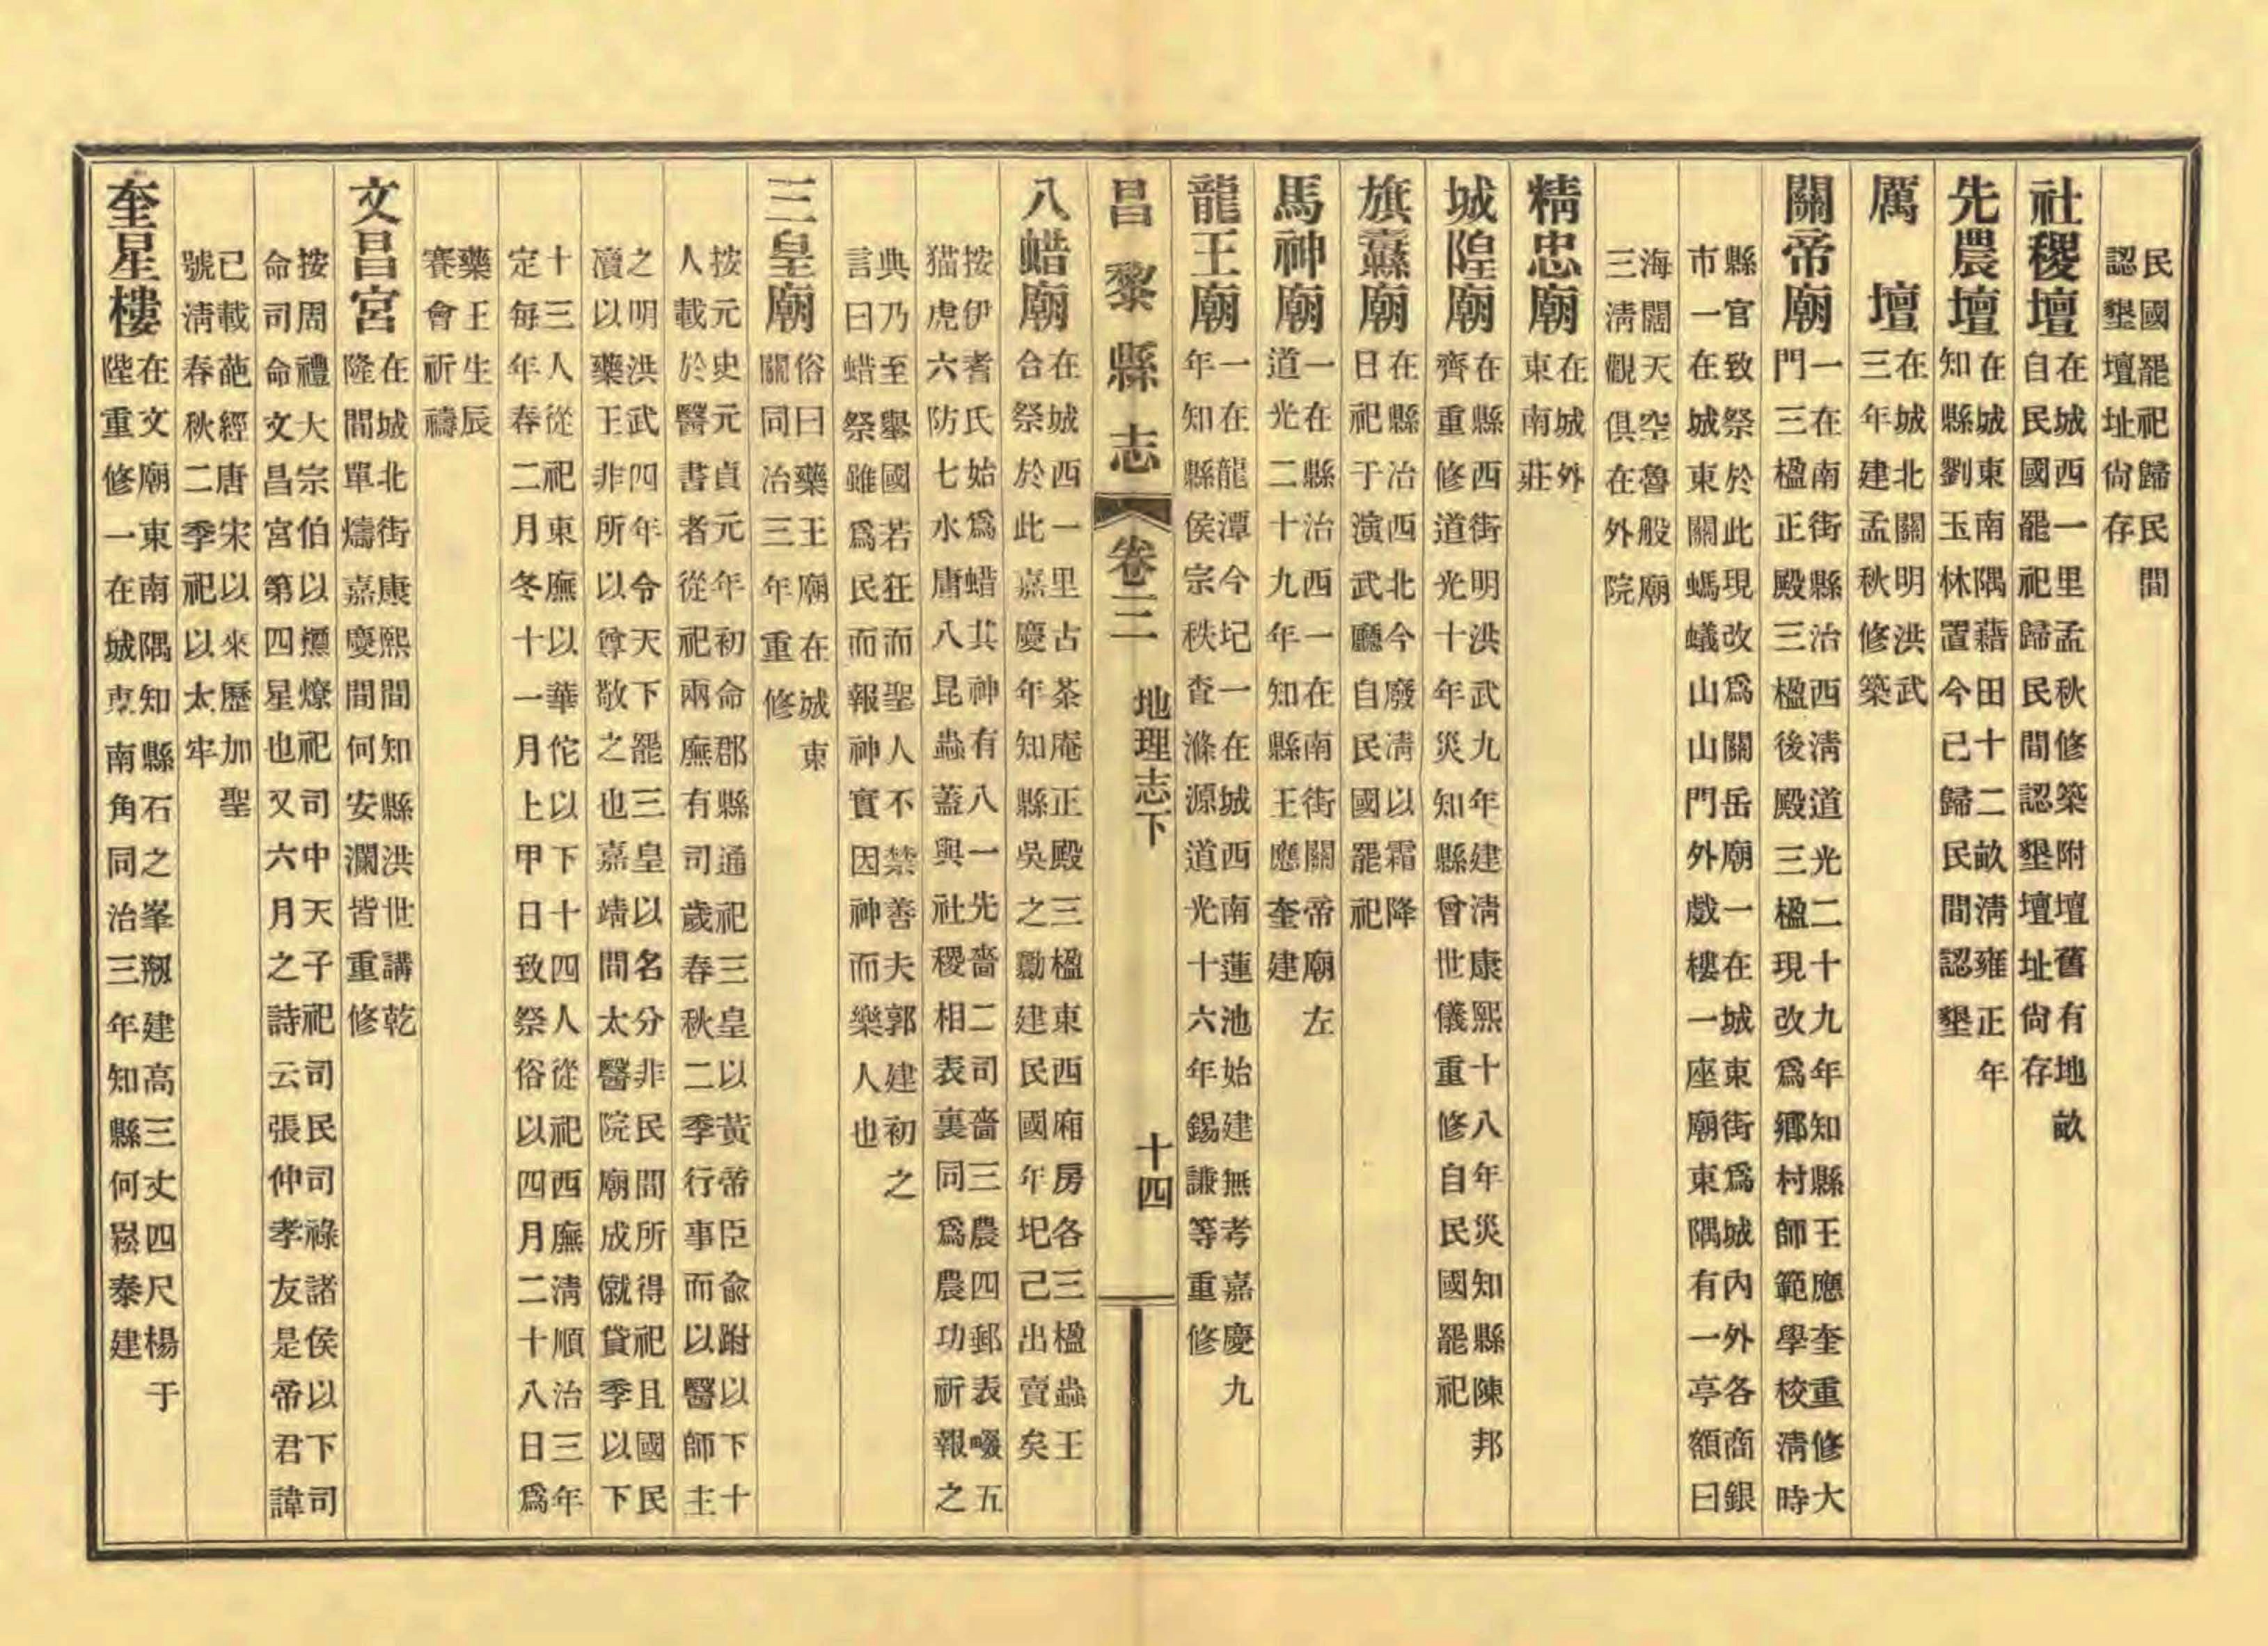 民國罷祀歸民間
認墾壇址尚存
社稷壇
在城西一里孟秋修築附壇舊有地畝
自民國罷祀歸民間認墾壇址尚存
先農壇
在城東南隅藉田十二畝清雍正年
知縣劉玉林置今已歸民間認墾
厲壇
在城北關明洪武
三年建孟秋修築
關帝廟
一在南街縣治西清道光二十九年知縣王應奎重修大
門三楹正殿三楹後殿三楹現改爲鄉村師範學校清時
縣官致祭於此現改爲關岳廟一在城東街爲城內外各商銀
市一在城東關螞蟻山山門外戲樓一座廟東隅有一亭額曰
海闊天空魯般廟
三淸觀俱在外院
精忠廟
在城外
東南莊
城隍廟
在縣西街明洪武九年建淸康熙十八年災知縣陳邦
齊重修道光十年災知縣曾世儀重修自民國罷祀
旗纛廟
在縣冶西北今廢淸以霜降
日祀于演武廳自民國罷祀
馬神廟
一在縣治西一在南街關帝廟左
道光二十九年知縣王應奎建
龍王廟
一在龍潭今圮一在城西南蓮池始建無考嘉慶九
年知縣侯宗秩査滌源道光十六年錫謙等重修
昌黎縣志 卷三 地理志下 十四
八蜡廟
在城西一里古茶庵正殿三楹東西廂房各三楹蟲王
合祭於此嘉慶年知縣吳之勷建民國年圮己出賣矣
按伊耆氏始爲蜡其神有八一先嗇二司嗇三農四郵表畷五
猫虎六防七水庸八昆蟲蓋與社稷相表裏同爲農功祈報之
典乃至舉國若狂而聖人不禁善夫郭建初之
言曰蜡祭雖爲民而報神實因神而樂人也
三皇廟
俗曰藥王廟在城東
關同治三年重修
按元史元貞元年初命郡縣通祀三皇以黃帝臣兪跗以下十
人載於醫書者從祀兩廡有司歲春秋二季行事而以醫師主
之明洪武四年令天下罷三皇以名分非民間所得祀且國民
瀆以藥王非所以尊敬之也嘉靖間太醫院廟成僦貸季以下
十三人從祀東廡以華佗以下十四人從祀西廡淸順治三年
定每年春二月冬十一月上甲日致祭俗以四月二十八日爲
藥王生辰
賽會祈禱
文昌宮
在城北街康熙間知縣洪世講乾
隆間單燽嘉慶間何安瀾皆重修
按周禮大宗伯以槱燎祀司中天子祀司民司祿諸侯以下司
命司命文昌宮第四星也又六月之詩云張仲孝友是帝君諱
已載葩經唐宋以來歷加聖
號淸春秋二季祀以太牢
奎星樓
在文廟東南隅知縣石之峯剏建高三丈四尺楊于
陛重修一在城東南角同治三年知縣何崧泰建